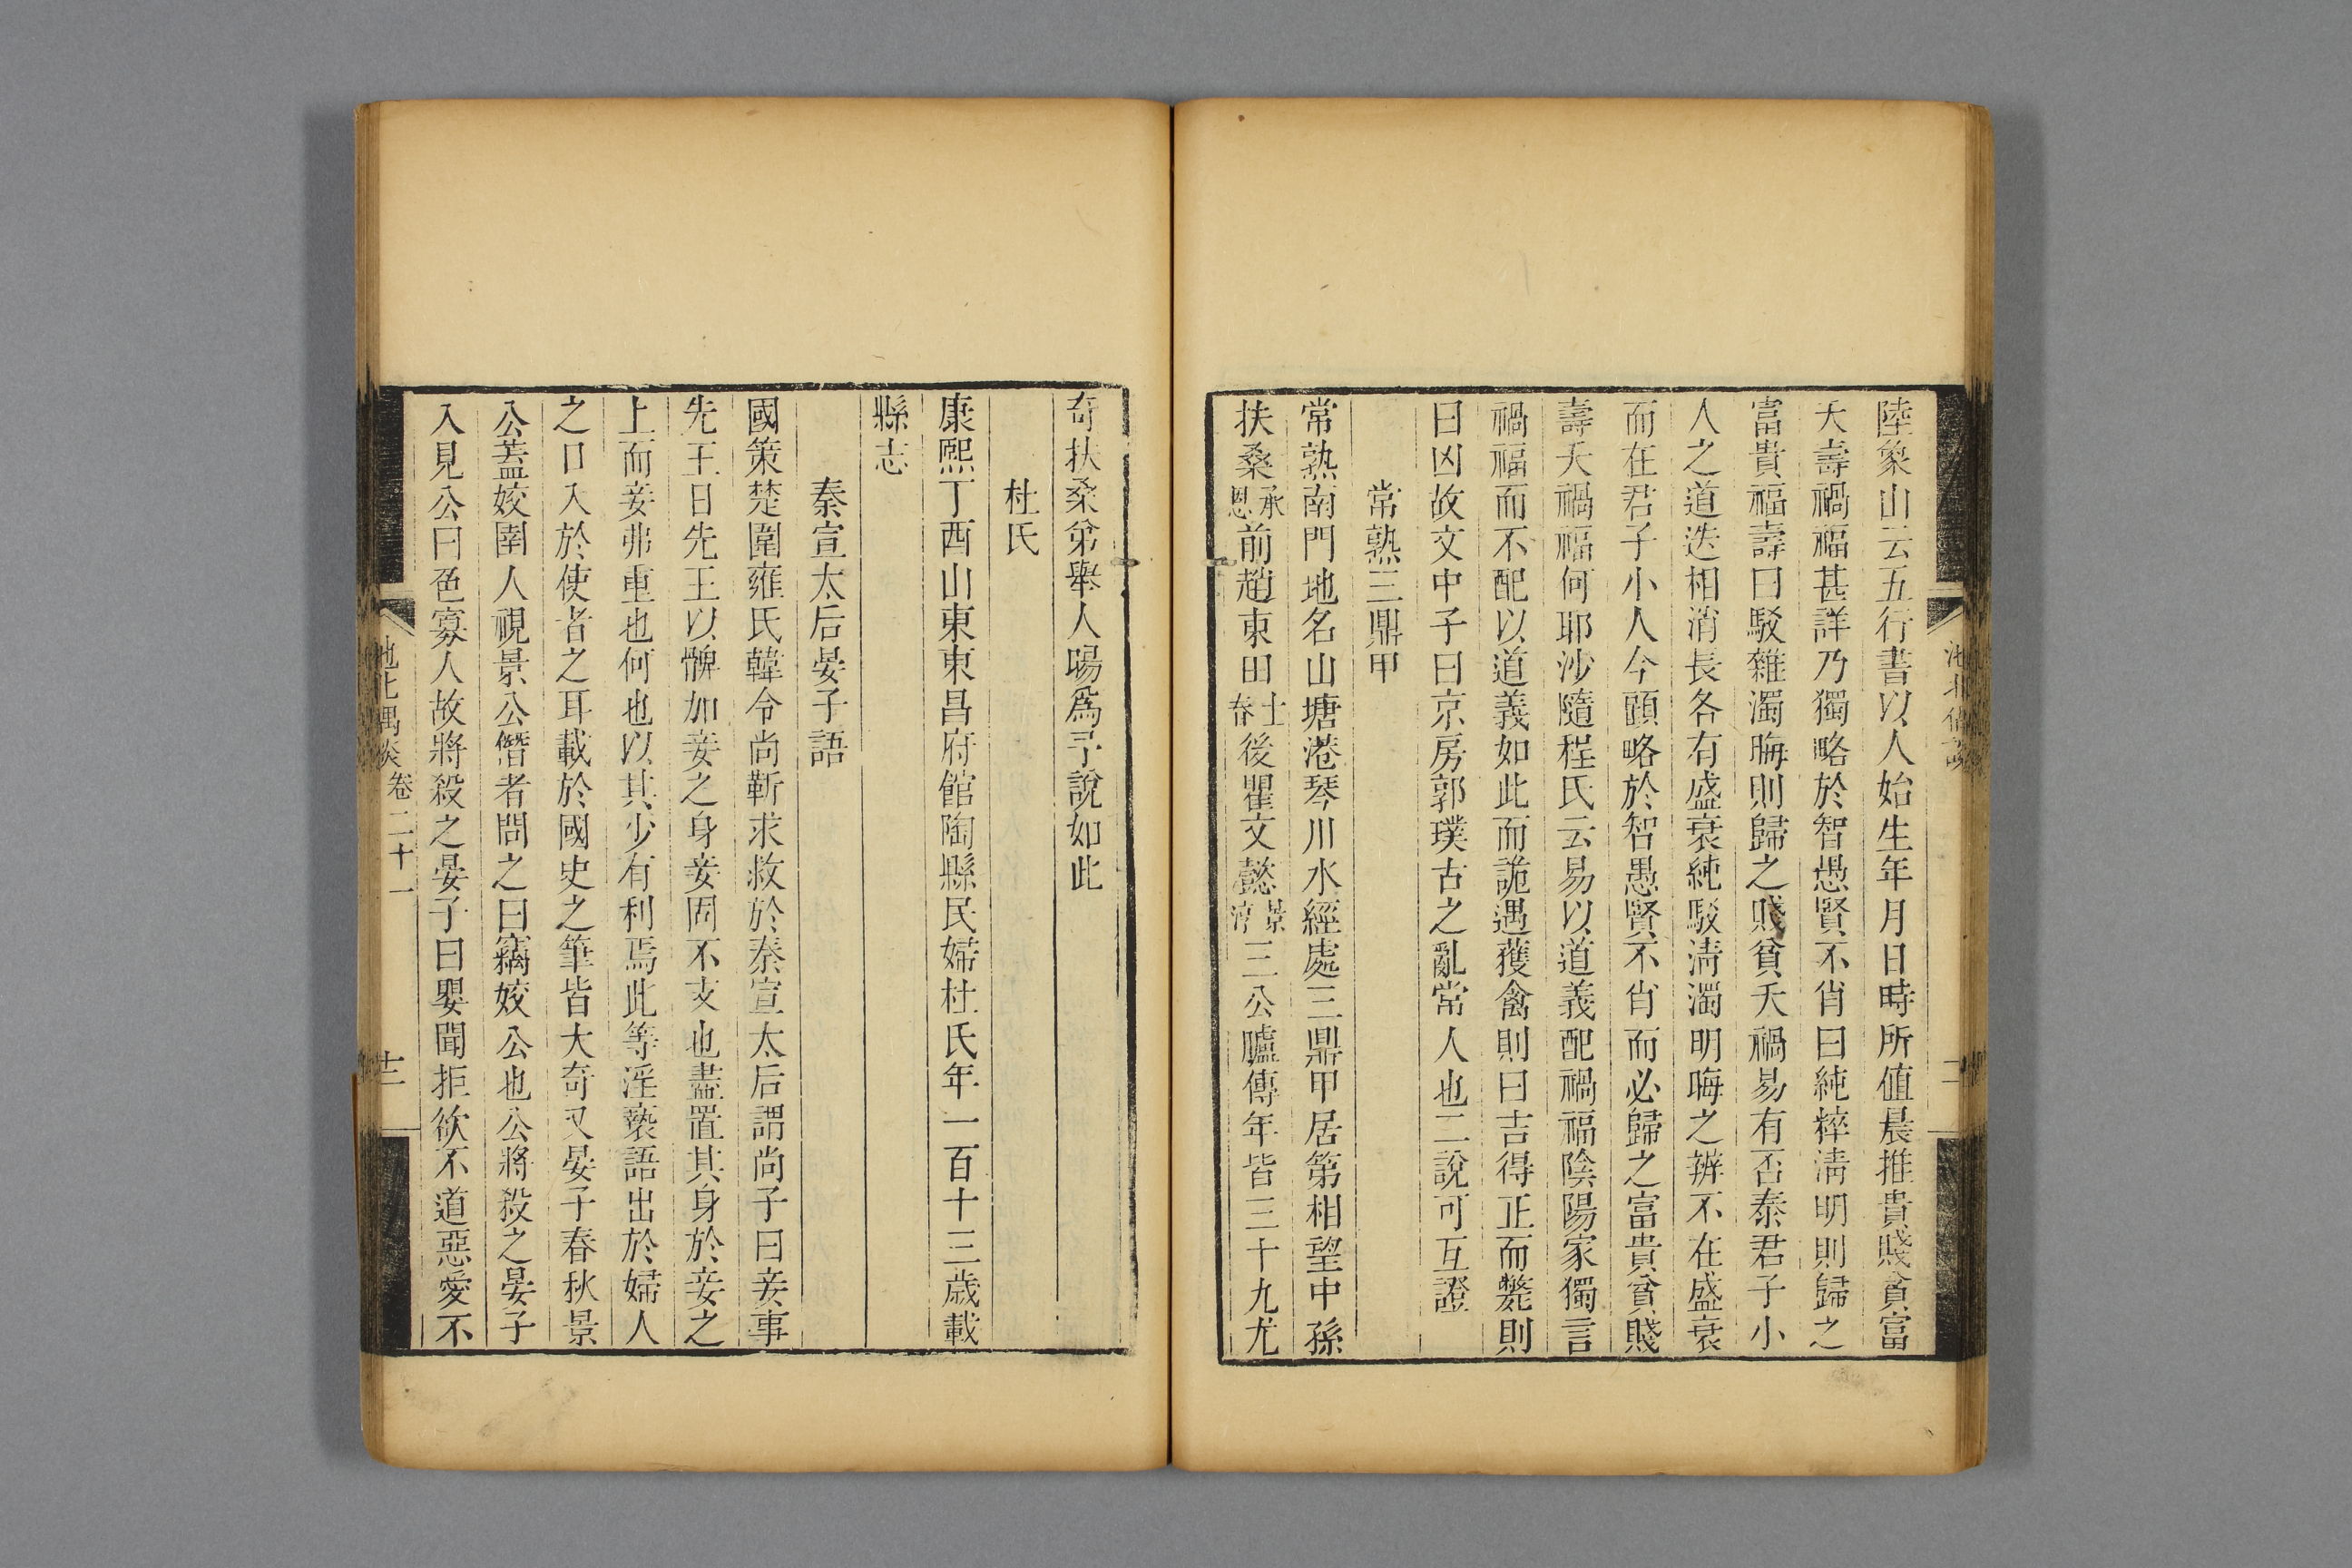 陸象山云五行書以人始生年月日時所值晨推貴賤貧富
夭壽禍福甚詳乃獨略於智愚賢不肖曰純粹淸明則歸之
富貴福壽曰駁雜濁晦則歸之賤貧夭禍易有否泰君子小
人之道迭相消長各有盛衰純駁淸濁明晦之辨不在盛衰
而在君子小人今頤略於智愚賢不肖而必歸之富貴貧賤
壽夭禍福何耶沙隨程氏云易以道義配禍福陰陽家獨言
禍福而不配以道義如此而詭遇獲禽則曰吉得正而斃則
曰凶故文中子曰京房郭璞古之亂常人也二說可互證
常熟三鼎甲
常熟南門地名山塘港琴川水經處三鼎甲居第相望中孫
扶桑承恩前趙東田士春後瞿文懿景淳三公臚傳年皆三十九尤
奇扶桑弟舉人暘爲予說如此
杜氏
康熙丁酉山東東昌府館陶縣民婦杜氏年一百十三歲載
縣志
秦宣太后晏子語
國策楚圍雍氏韓令尚靳求救於秦宣太后謂尚子曰妾事
先王日先王以髀加妾之身妾固不支也盡置其身於妾之
上而妾弗重也何也以其少有利焉此等淫褻語出於婦人
之口入於使者之耳載於國史之筆皆大奇又晏子春秋景
公蓋姣圉人視景公僭者問之曰竊姣公也公將殺之晏子
入見公曰色寡人故將殺之晏子曰嬰聞拒欲不道惡愛不
池北偶談 卷二十一